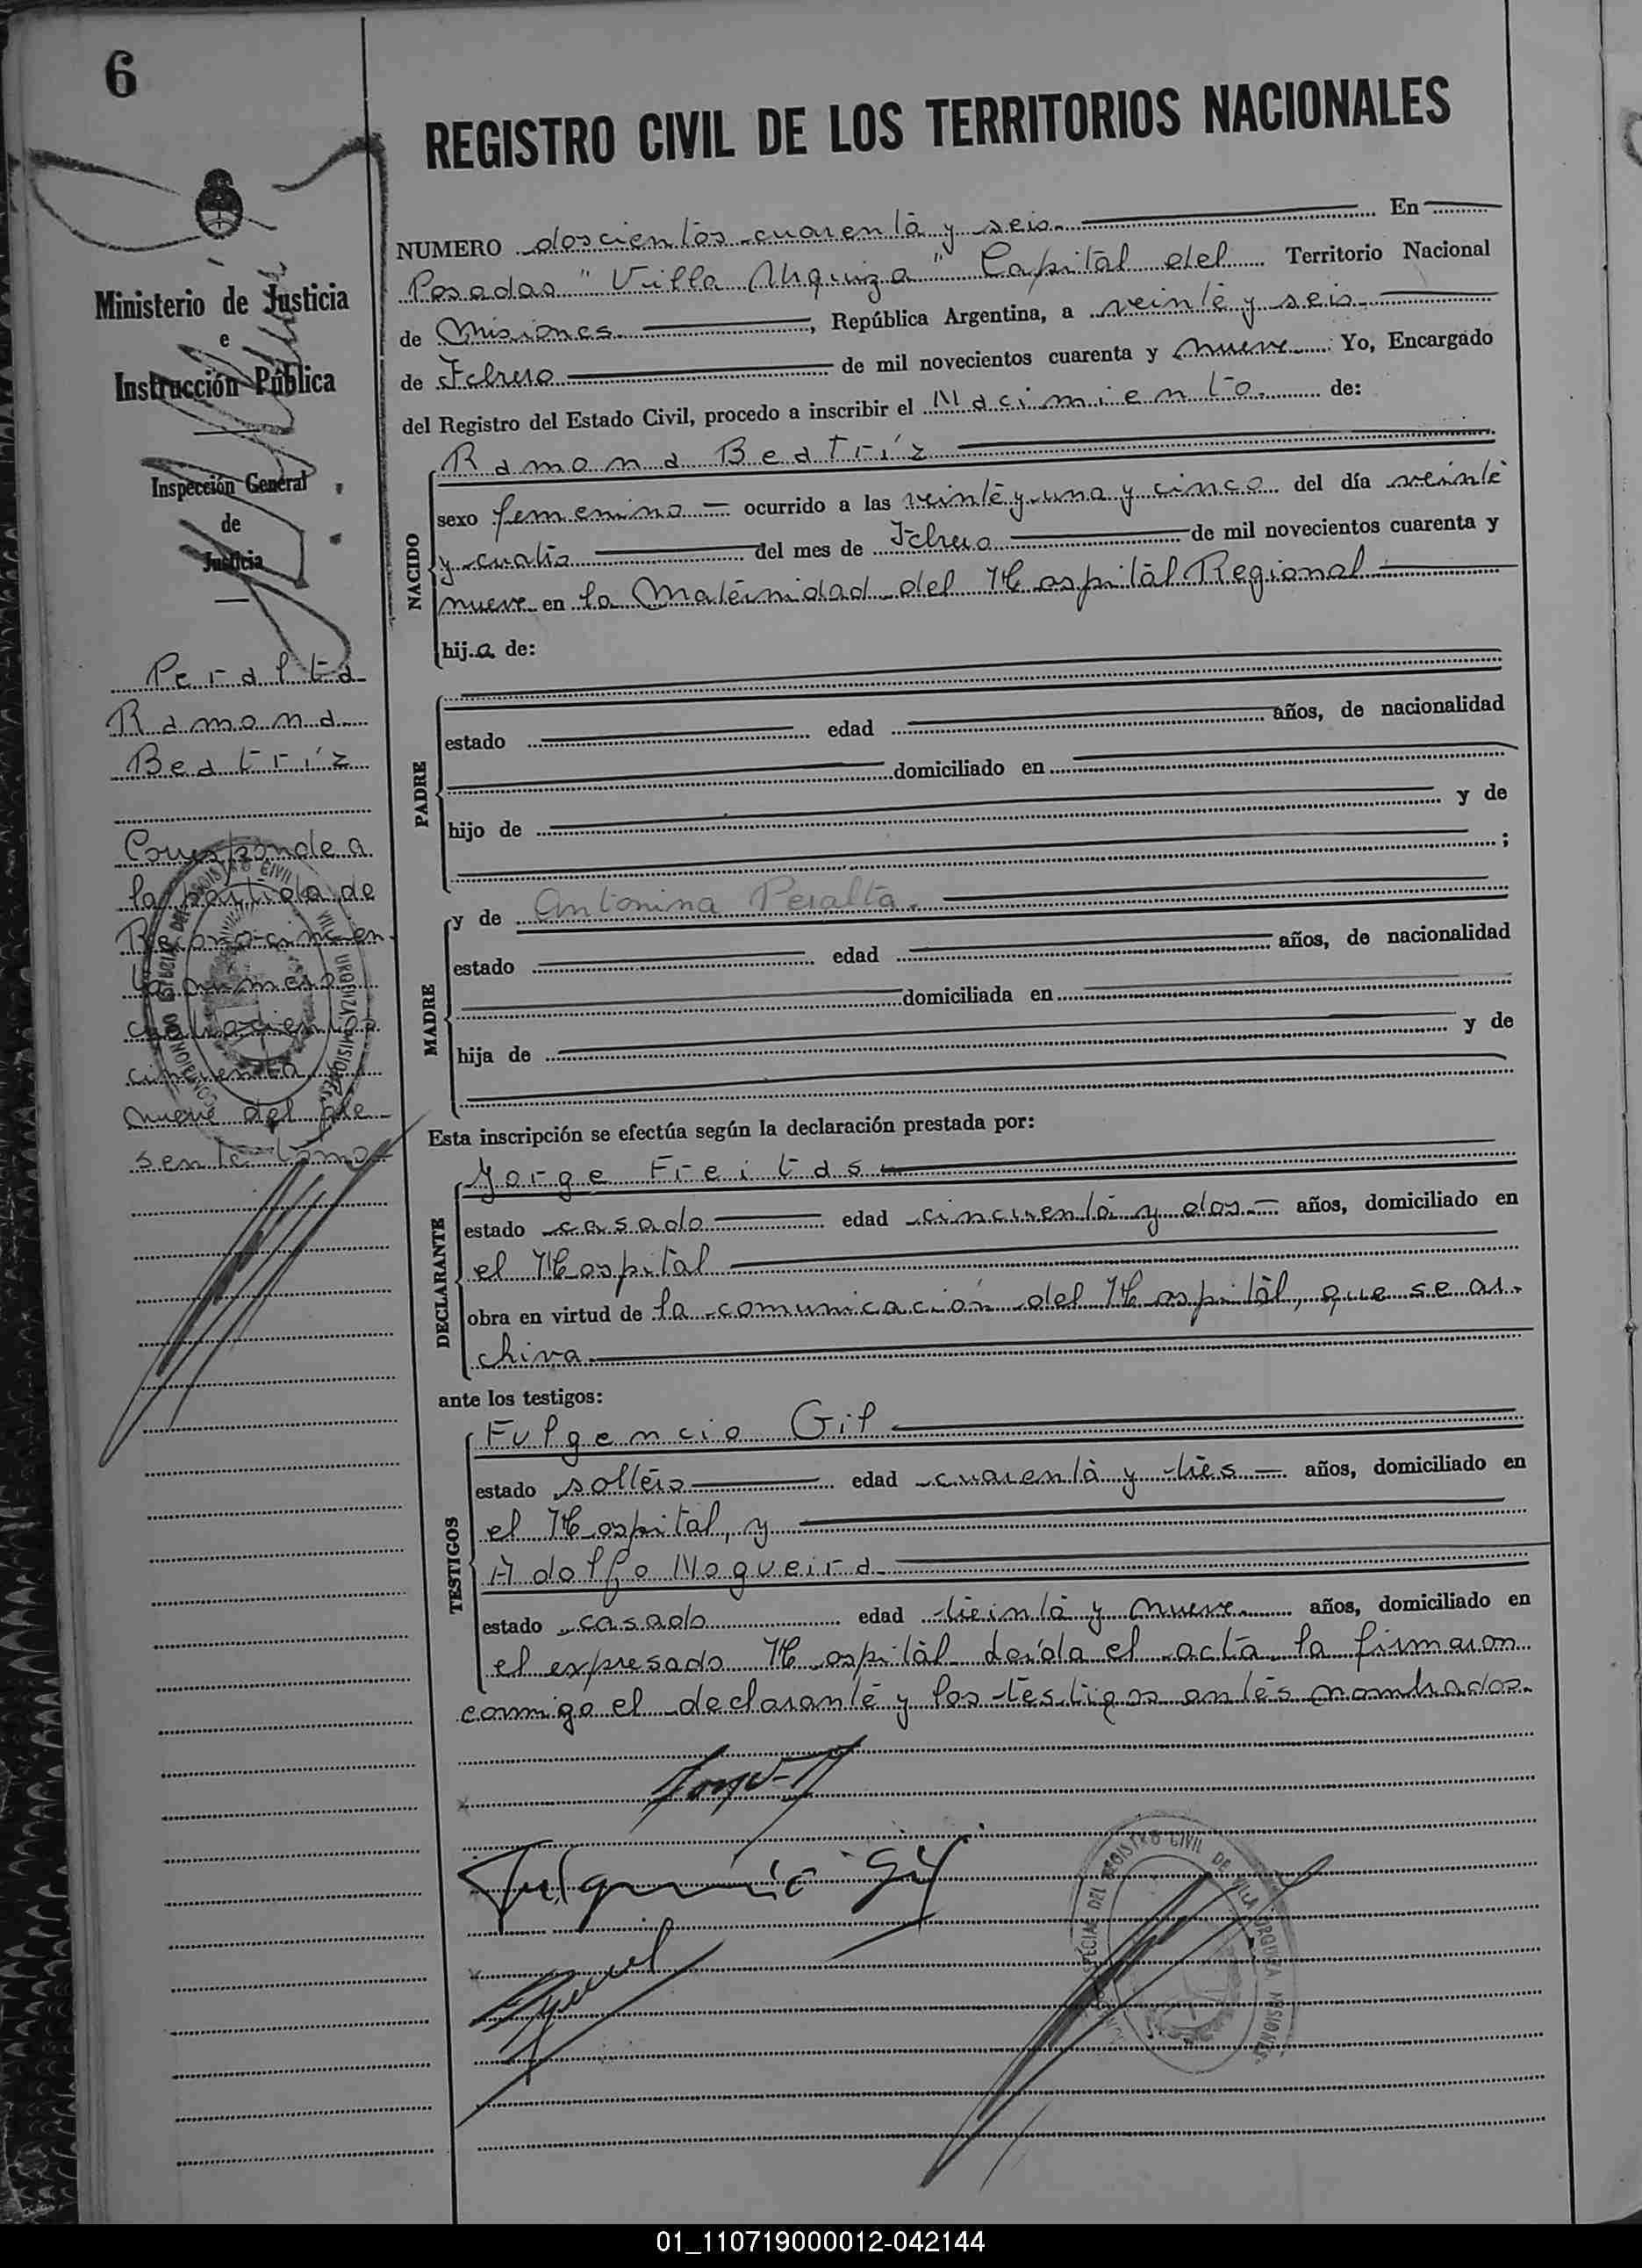 6
REGISTRO CIVIL DE LOS TERRITORIOS NACIONALES
Ministerio de Justicia
e
Instrucción Pública
Inspección General
de
Justicia
Peralta
Ramona
Beatríz
Corresponde a
la partida de
Reconocimien-
to numero
cuatrocientos
cincuenta
nueve del pre-
sente tomo
NUMERO doscientos cuarenta y seis. En
Posadas "Villa Urquiza" Capital del Territorio Nacional
de Misiones, República Argentina, a veinte y seis
de Febrero de mil novecientos cuarenta y nueve Yo, Encargado
del Registro del Estado Civil, procedo a inscribir el Nacimiento. de:
NACIDO
Ramona Beatríz
sexo femenino ocurrido a las veinte y una y cinco del día veinte
y cuatro del mes de Febrero de mil novecientos cuarenta y
nueve en la Maternidad del Hospital Regional
hij.a de:
PADRE
estado edad años, de nacionalidad
domiciliado en
hijo de y de
;
MADRE
y de Antonina Peralta.
estado edad años, de nacionalidad
domiciliada en
hija de y de
Esta inscripción se efectúa según la declaración prestada por:
DECLARANTE
Jorge Freitas
estado casado edad cincuenta y dos años, domiciliado en
el Hospital
obra en virtud de la comunicación del Hospital, que se ar-
chiva.
ante los testigos:
TESTIGOS
Fulgencio Gil
estado soltero edad cuarenta y tres años, domiciliado en
el Hospital, y
Adolfo Nogueira
estado casado edad treinta y nueve años, domiciliado en
el expresado Hospital leída el acta la firmaron
conmigo el declarante y los testigos antes nombrados.
Fulgencio Gil
REGISTRO CIVIL DE VILLA URQUIZA MISIONES
01_110719000012-042144